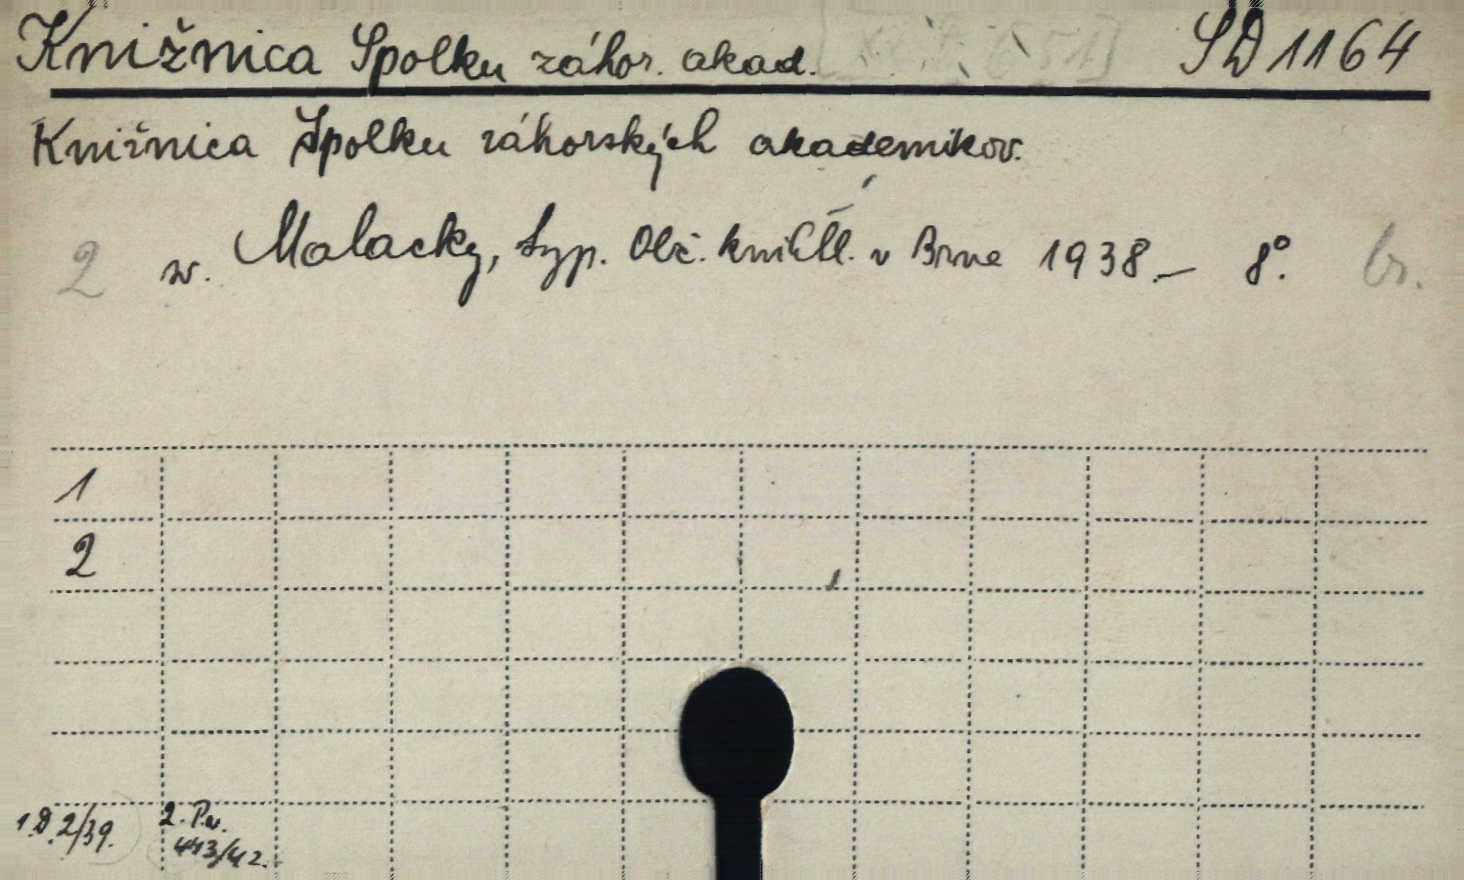 Knižnica Spolku záhor. akad. SD 1164
Knižnica Spolku záhorských akademikov.
2 sv. Malacky, Typ. Obč. kníhtl. v Brne 1938.– 8°. br.
1
2
1.D.2/39. 2. Pv.
443/42.